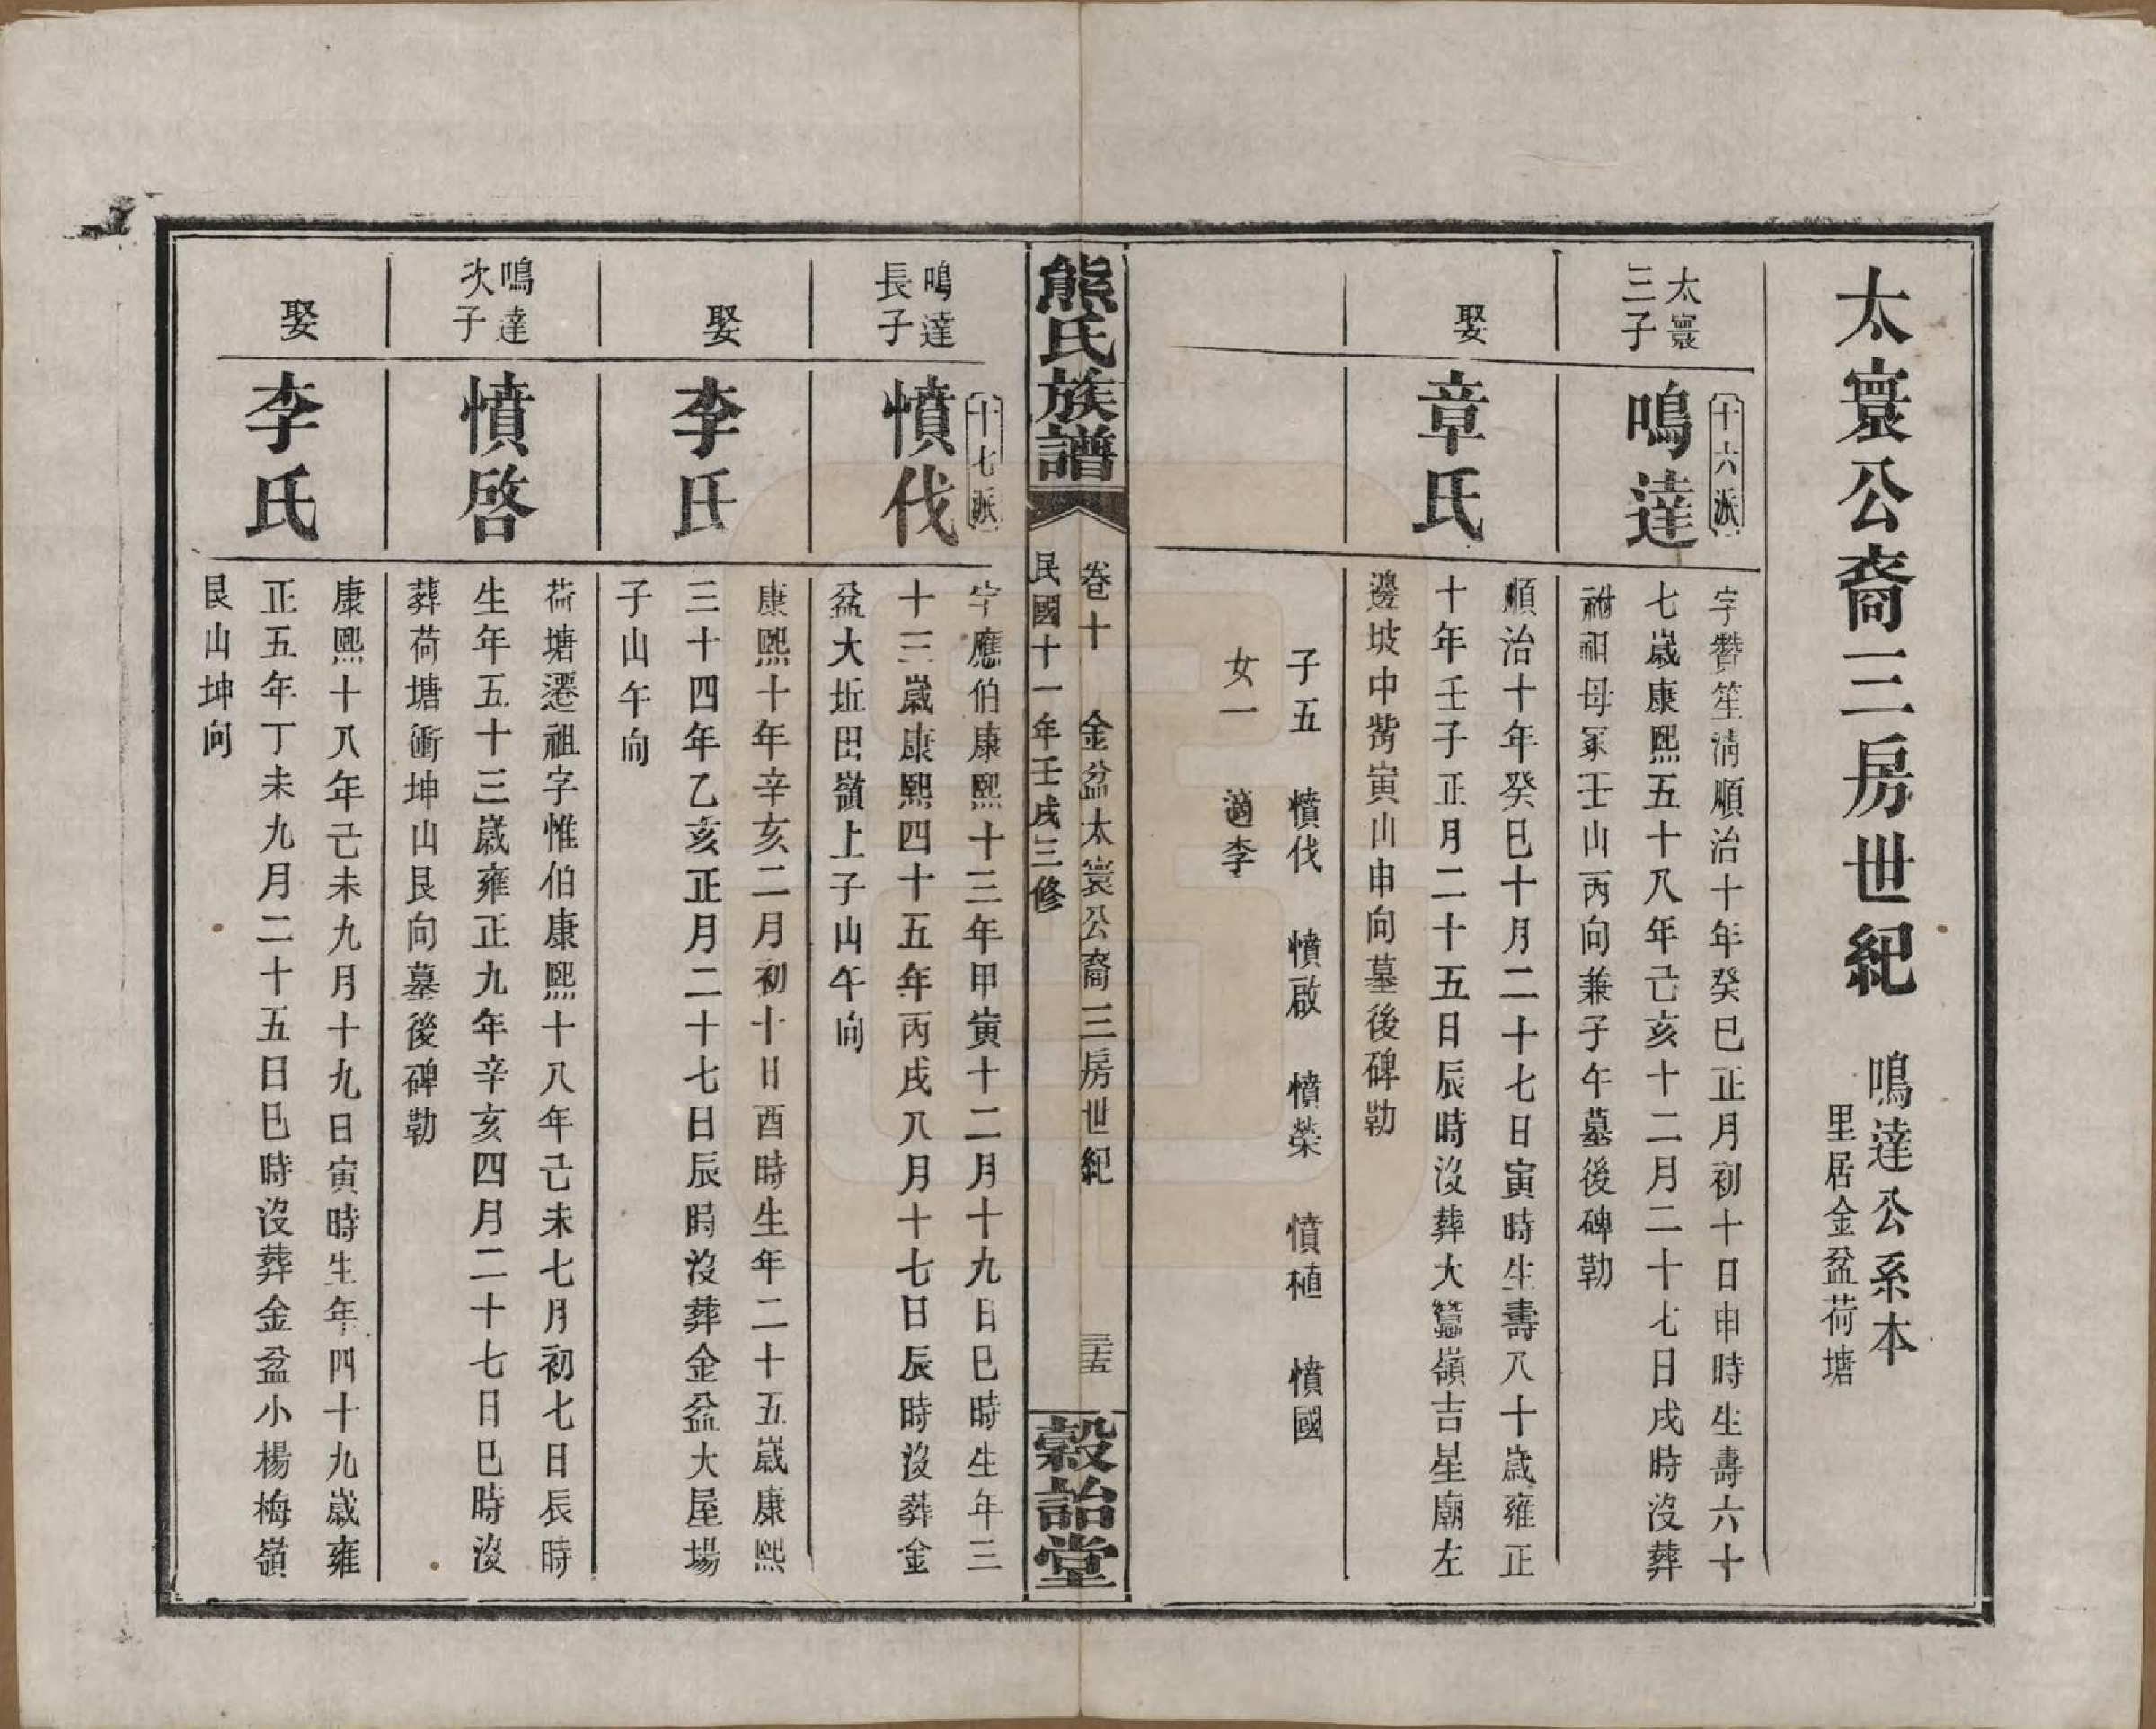 太寰公裔三房世紀
鳴達公系本
里居金盆荷塘
太寰
三子
十六派
鳴達
字贊笙清順治十年癸巳正月初十日申時生壽六十
七歲康熙五十八年己亥十二月二十七日戌時沒葬
祔祖母冢壬山丙向兼子午墓後碑勒
娶
章氏
順治十年癸巳十月二十七日寅時生壽八十歲雍正
十年壬子正月二十五日辰時沒葬大鸞嶺吉星廟左
邊坡中嘴寅山申向墓後碑勒
子五 憤伐 憤啟 憤榮 憤植 憤國
女一 適李
熊氏族譜
卷十 金盆太寰公裔三房世紀 三十五
民國十一年壬戌三修
穀詒堂
鳴達
長子
十七派
憤伐
字應伯康熙十三年甲寅十二月十九日巳時生年三
十三歲康熙四十五年丙戌八月十七日辰時沒葬金
盆大坵田嶺上子山午向
娶
李氏
康熙十年辛亥二月初十日酉時生年二十五歲康熙
三十四年乙亥正月二十七日辰時沒葬金盆大屋場
子山午向
鳴達
次子
憤啓
荷塘遷祖字惟伯康熙十八年己未七月初七日辰時
生年五十三歲雍正九年辛亥四月二十七日巳時沒
葬荷塘衝坤山艮向墓後碑勒
娶
李氏
康熙十八年己未九月十九日寅時生年四十九歲雍
正五年丁未九月二十五日巳時沒葬金盆小楊梅嶺
艮山坤向